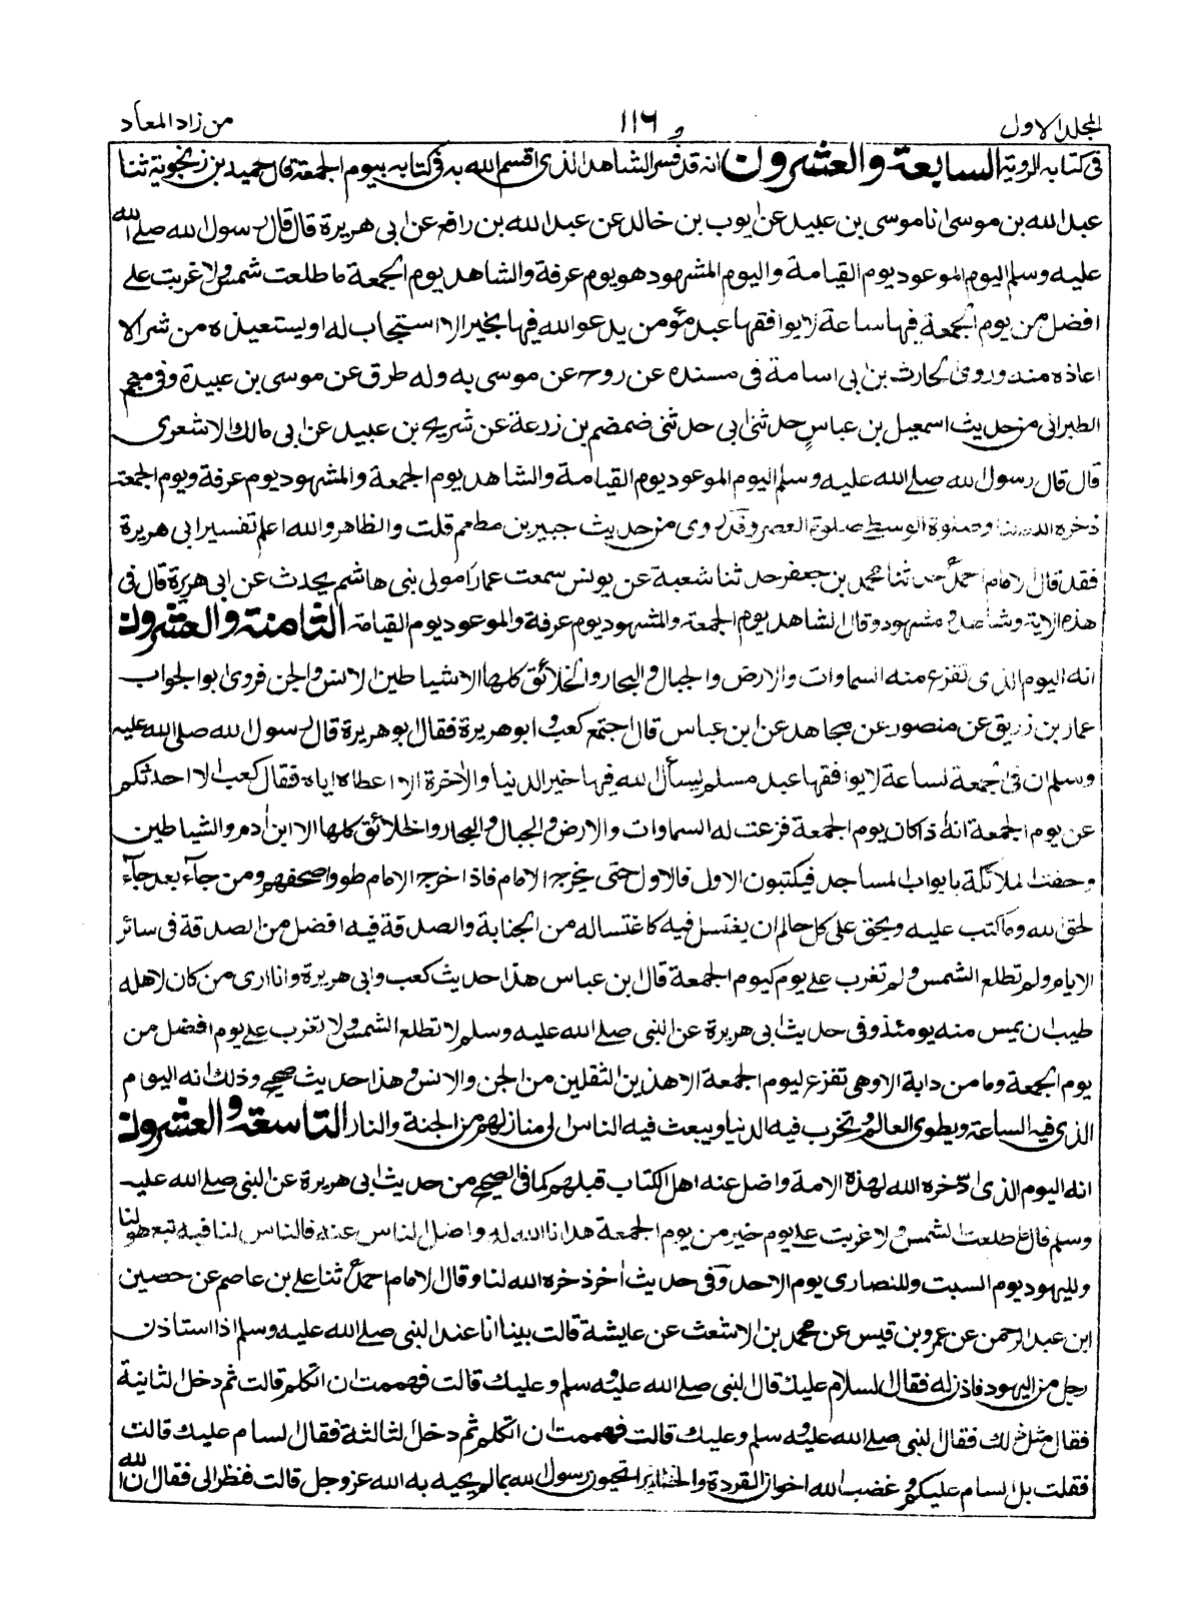 المجلد الاول ١١٦ من زاد المعاد
فى كتابه الروية السابعة والعشرون انه قد فسر الشاهد الذى اقسم الله به فى كتابه بيوم الجمعة قال حميد بن زنجوية ثنا
عبد الله بن موسى انا موسى بن عبيد عن ايوب بن خالد عن عبد الله بن رافع عن ابى هريرة قال قال رسول الله صلى الله
عليه وسلم اليوم الموعود يوم القيامة واليوم المشهود هو يوم عرفة والشاهد يوم الجمعة ما طلعت شمس ولا غربت على
افضل من يوم الجمعة فيها ساعة لا يوافقها عبد مؤمن يدعو الله فيها بخير الا استجاب له او يستعيذه من شر الا
اعاذه منه وروى الحارث بن ابى اسامة فى مسنده عن روح عن موسى به وله طرق عن موسى بن عبيدة وفى معجم
الطبرانى من حديث اسمعيل بن عباس حدثنى ابى حدثنى ضمضم بن زرعة عن شريح بن عبيد عن ابى مالك الاشعرى
قال قال رسول الله صلى الله عليه وسلم اليوم الموعود يوم القيامة والشاهد يوم الجمعة والمشهود يوم عرفة ويوم الجمعة
ذخره الله لنا وصلوة الوسطى صلوة العصر وقد روى من حديث جبير بن مطعم قلت والظاهر والله اعلم تفسير ابى هريرة
فقد قال الامام احمد حدثنا محمد بن جعفر حدثنا شعبة عن يونس سمعت عمارا مولى بنى هاشم يحدث عن ابى هريرة قال فى
هذه الاية وشاهد ومشهود وقال الشاهد يوم الجمعة والمشهود يوم عرفة والموعود يوم القيامة الثامنة والعشرون
انه اليوم الذى تفزع منه السماوات والارض والجبال والبحار والخلائق كلها الا شياطين الانس والجن فروى ابو الجواب
عمار بن زريق عن منصور عن مجاهد عن ابن عباس قال اجتمع كعب وابو هريرة فقال ابو هريرة قال رسول الله صلى الله عليه
وسلم ان فى الجمعة لساعة لا يوافقها عبد مسلم يسأل الله فيها خير الدنيا والاخرة الا اعطاه اياه فقال كعب الا احدثكم
عن يوم الجمعة انه اذا كان يوم الجمعة فزعت له السماوات والارض والجبال والبحار والخلائق كلها الا ابن ادم والشياطين
وحفت الملائكة بابواب المساجد فيكتبون الاول فالاول حتى يخرج الامام فاذا خرج الامام طووا صحفهم ومن جآء بعد جآء
لحق لله وما كتب عليه ويحق على كل حالم ان يغتسل فيه كاغتساله من الجنابة والصدقة فيه افضل من الصدقة فى سائر
الايام ولم تطلع الشمس ولم تغرب على يوم كيوم الجمعة قال ابن عباس هذا حديث كعب وابى هريرة وانا ارى من كان لاهله
طيب ان يمس منه يومئذ وفى حديث ابى هريرة عن النبى صلى الله عليه وسلم لا تطلع الشمس ولا تغرب على يوم افضل من
يوم الجمعة وما من دابة الا وهى تفزع ليوم الجمعة الا هذين الثقلين من الجن والانس وهذا حديث صحيح وذلك انه اليوم
الذى فيه الساعة ويطوى العالم وتخرب فيه الدنيا ويبعث فيه الناس الى منازلهم من الجنة والنار التاسعة والعشرون
انه اليوم الذى ادخره الله لهذه الامة واضل عنه اهل الكتاب قبلهم كما فى الصحيح من حديث ابى هريرة عن النبى صلى الله عليه
وسلم قال ما طلعت الشمس ولا غربت على يوم خير من يوم الجمعة هدانا الله له واضل الناس عنه فالناس لنا فيه تبع هو لنا
ولليهود يوم السبت وللنصارى يوم الاحد وفى حديث اخر ذخره الله لنا وقال الامام احمد ثنا على بن عاصم عن حصين
ابن عبد الرحمن عن عمرو بن قيس عن محمد بن الاشعث عن عايشة قالت بينا انا عند النبى صلى الله عليه وسلم اذا استاذن
رجل من اليهود فاذن له فقال السلام عليك قال النبى صلى الله عليه وسلم وعليك قالت فهممت ان اتكلم قالت ثم دخل الثانية
فقال مثل ذلك فقال النبى صلى الله عليه وسلم وعليك قالت فهممت ان اتكلم ثم دخل الثالثة فقال السام عليك قالت
فقلت بل السام عليكم وغضب الله اخوان القردة والخنازير اتحيون رسول الله بما لم يحيه به الله عز وجل قالت فنظر الى فقال ان الله